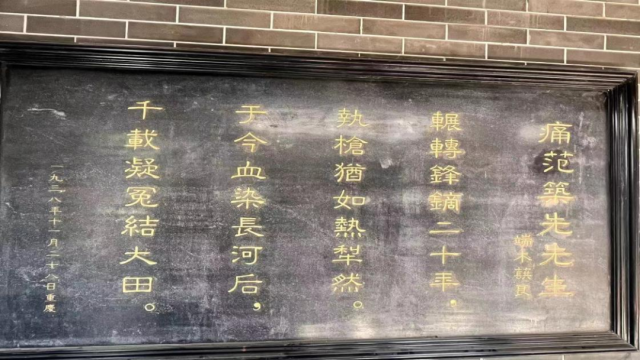 痛范築先先生
端木蕻良
輾轉鋒鏑二十年，
執槍猶如熱犁然。
于今血染長河后，
千載凝冤結大田。
一九三八年十一月二十八日重慶